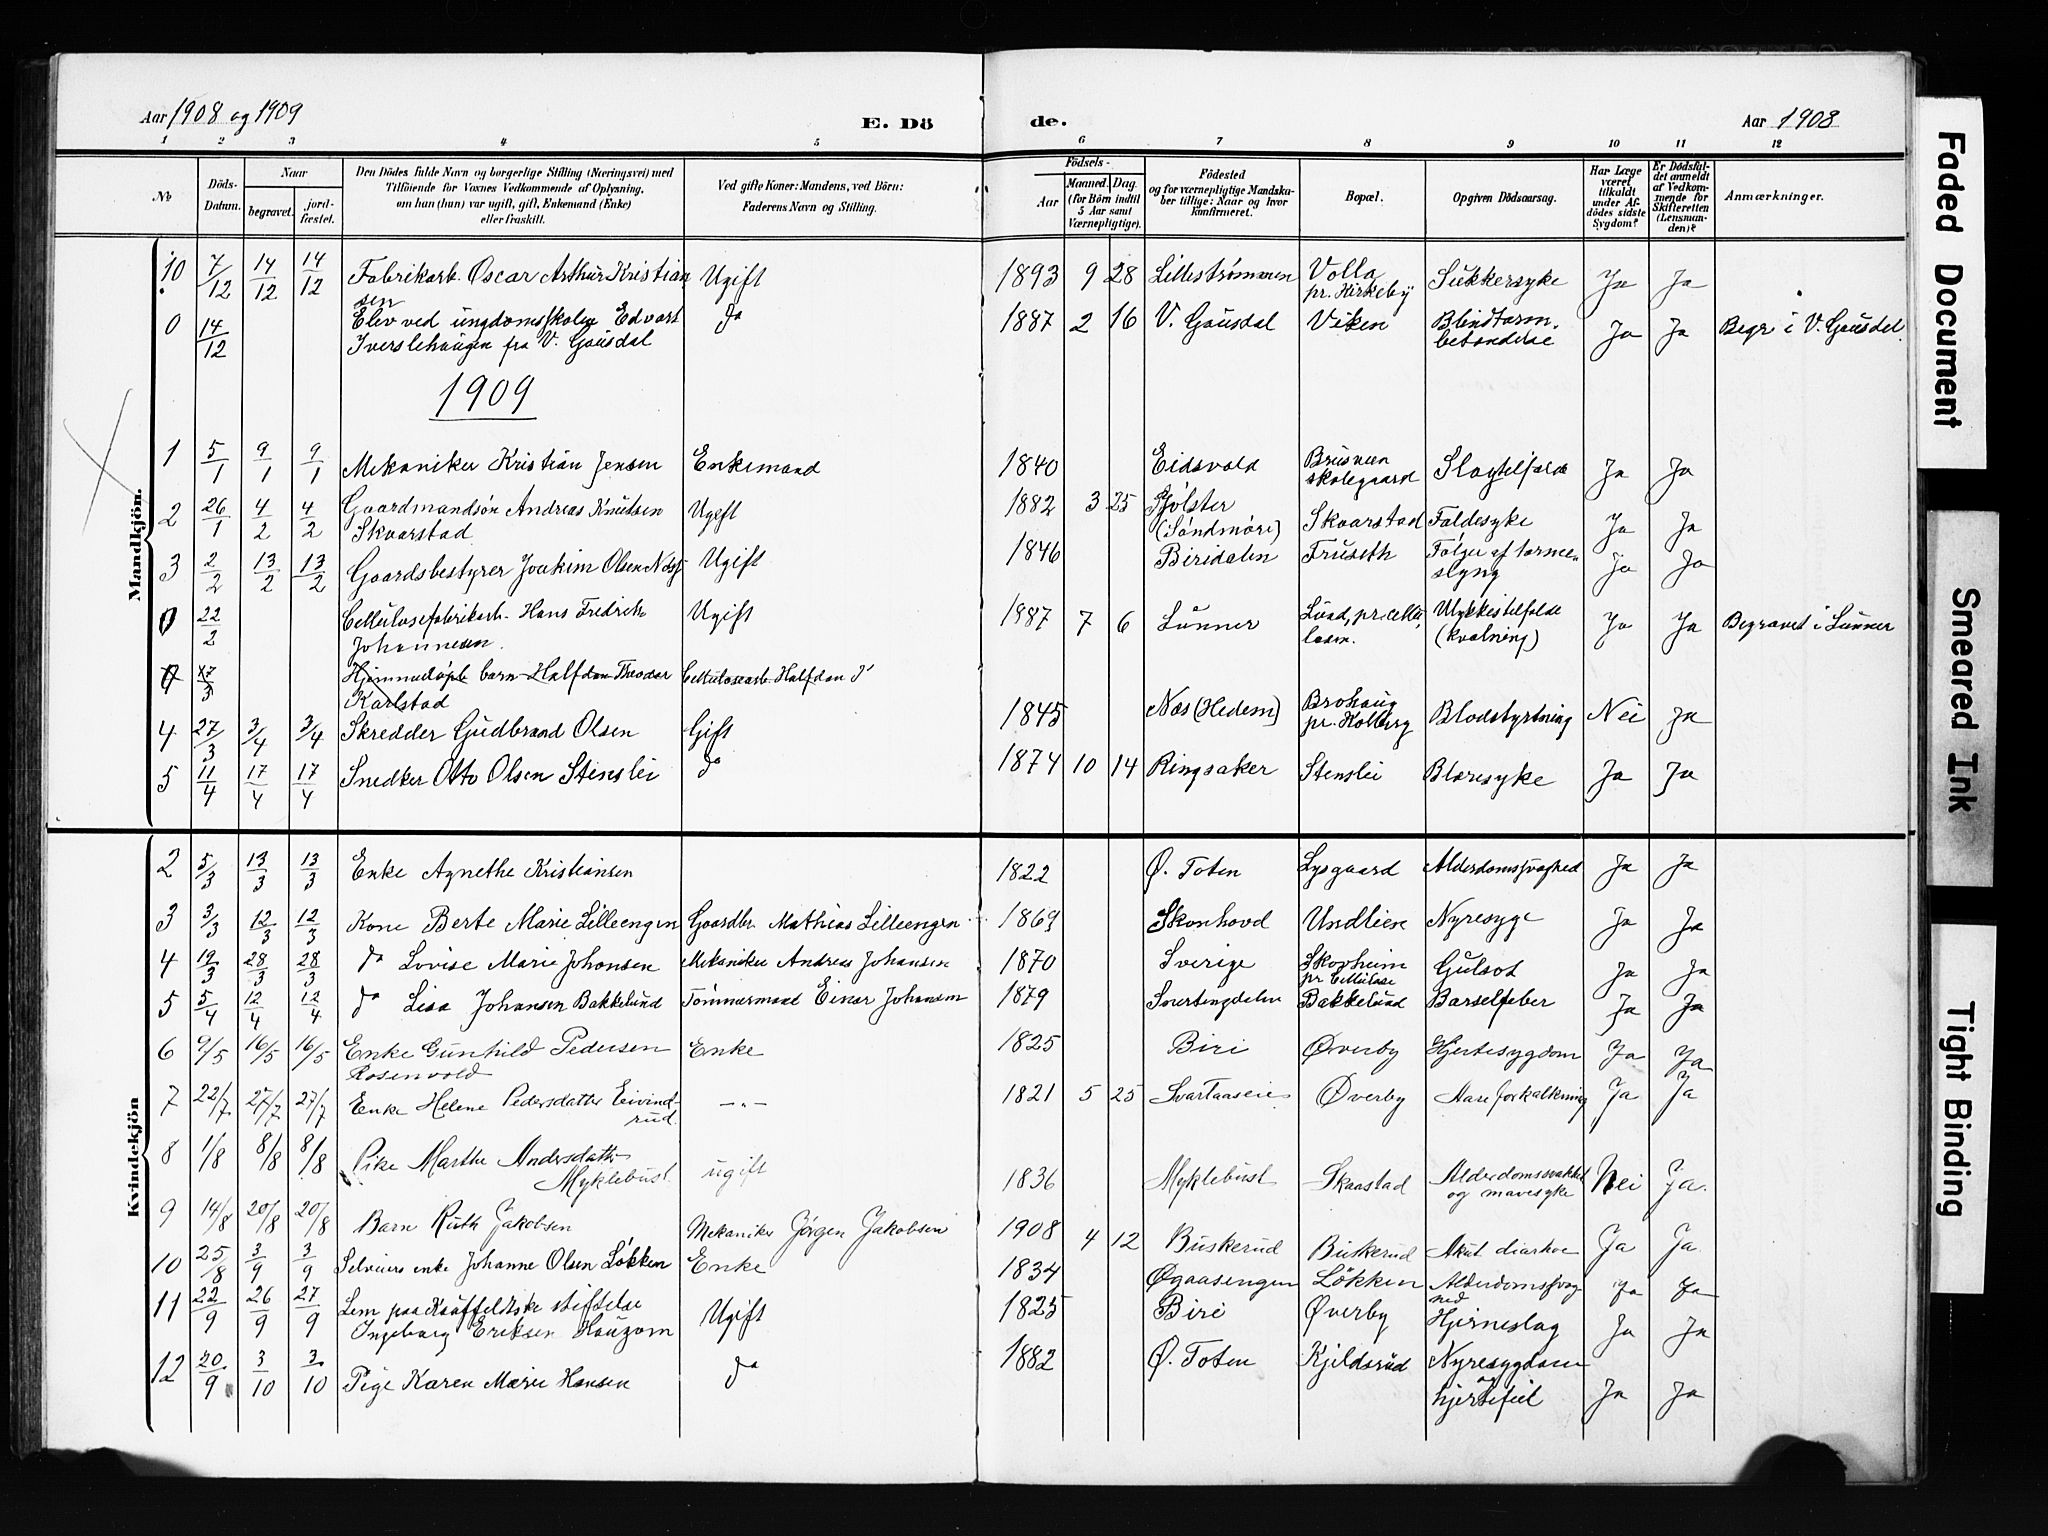 Aar 1908 og 1909
E. Dö
de.
Aar 1908
1 2 3 4 5 6 7 8 9 10 11 12
No
Döds-Datum.
Naar
begravet.
jord-fæstet.
Den Dödes fulde Navn og borgerlige Stilling (Næringsvei) med
Tilföiende for Voxnes Vedkommende af Oplysning,
om han (hun) var ugift, gift, Enkemand (Enke)
eller fraskilt.
Ved gifte Koner: Mandens, ved Börn:
Faderens Navn og Stilling.
Födsels-
Aar
Maaned. Dag.
(for Börn indtil
5 Aar samt
Værnepligtige).
Födested
og for værnepligtige Mandska-
ber tillige: Naar og hvor
konfirmeret.
Bopæl.
Opgiven Dödsaarsag.
Har Læge
været
tilkaldt
under Af-
dödes sidste
Sygdom?
Er Dödsfal-
det anmeldt
af Vedkom-
mende for
Skifteretten
(Lensman-
den)?
Anmærkninger.
Mandkjön.
10 7/12 14/12 14/12 Fabrikarb. Oscar Arthur Kristian Ugift 1893 9 28 Lillestrømmen Volla Sukkersyke Ja Ja
sen pr. Kirkeby
0 14/12 Elev ved ungdomsskolen Edvart do 1887 2 16 V. Gausdal Viken Blindtarm- Ja Ja Begr i V. Gausdal
Iverslehaugen fra V. Gausdal betændelse
1909
1 5/1 9/1 9/1 Mekaniker Kristian Jensen Enkemand 1840 Eidsvold Ja Ja
skolegaard
2 26/1 4/2 4/2 Gaardmandsøn Andreas Knutsen Ugift 1882 3 25 Jølster Skvarstad Faldesyke Ja Ja
Skvarstad (Søndmøre)
3 2/2 13/2 13/2 Gaardsbestyrer Joakim Olsen Ugift 1846 Biridalen Fruseth Følger af tarme- Ja Ja
slyng
0 22/2 Cellulosefabrikarb. Hans Fredrik Ugift 1887 7 6 Lunner Lund, pr. cellu- Ulykkestelfælde Ja Ja Begravet i Lunner
Johannesen losen. (kvælning)
0 17/3 Hjemmedøpt barn Halfdan Theodor Cellulosearb. Halfdan
Karlstad
4 27/3 3/4 3/4 Skredder Gudbrand Olsen Gift 1845 Næs (Hedem) Brohaug Blodstyrtning Nei Ja
pr. Kolberg
5 11/4 17/4 17/4 Snedker Otto Olsen Stenslei do 1874 10 14 Ringsaker Stenslei Blæresyke Ja Ja
Kvindekjön
2 5/3 13/3 13/3 Enke Agnethe Kristiansen 1822 Ø. Toten Lysgaard Alderdomssvaghed Ja Ja
3 3/3 12/3 12/3 Kone Berte Marie Lilleengen Gaardbr. Mathias Lilleengen 1869 Skonhovd Undlien Nyresyge Ja Ja
4 19/3 28/3 28/3 do Lovise Marie Johansen Mekaniker Andreas Johansen 1870 Sverige Skogheim Gulsot Ja Ja
pr Cellulose
5 5/4 12/4 12/4 do Lisa Johansen Bakkelund Tømmermand Einar Johansen 1879 Snertingdalen Bakkelund Barselfeber Ja Ja
6 9/5 16/5 16/5 Enke Gunhild Pedersen Enke 1825 Biri Øverby Hjertesygdom Ja Ja
Rosenvold
7 22/7 27/7 27/7 Enke Helene Pedersdatter Eivind- —"— 1821 5 25 Svartaaseie Øverby Aareforkalkning Ja Ja
rud.
8 1/8 8/8 8/8 Pike Marthe Andersdatter ugift 1836 Myklebust Skaastad Alderdomssvakhet Nei Ja.
Myklebust og mavesyke
9 14/8 20/8 20/8 Barn Ruth Jakobsen Mekaniker Jørgen Jakobsen 1908 4 12 Buskerud Buskerud Akut diarhoe Ja Ja.
10 25/8 3/9 3/9 Selveiers enke Johanne Olsen Løkken Enke 1834 Øgaasengen Løkken Alderdomssvag Ja Ja
hed
11 22/9 26/9 27/9 Lem paa Kauffeldtske stiftelse Ugift 1825 Biri Øverby Hjerneslag Ja Ja
Ingeborg Eriksen Hougom
12 20/9 3/10 3/10 Pige Karen Marie Hansen do 1882 Ø. Toten Kjildsrud Nyresygdom Ja Ja
og
hjertefeil
Faded Document
Smeared Ink
Tight Binding